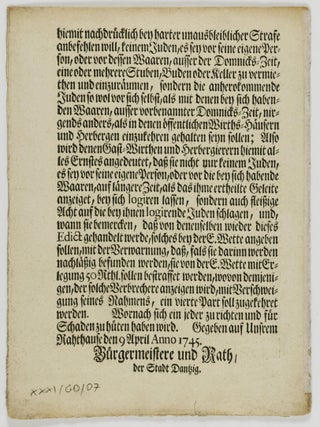 hiemit nachdrücklich bey harter unausbleiblicher Strafe
anbefehlen will, keinem Juden, es sey vor seine eigene Per-
son, oder vor dessen Waaren, ausser der Domnicks-Zeit,
eine oder mehrere Stuben, Buden oder Keller zu vermie-
then und einzuräumen, sondern die anherokommende
Juden so wol vor sich selbst, als mit denen bey sich haben-
den Waaren, ausser vorbenannter Domnicks-Zeit, nir-
gends anders, als in denen öffentlichen Wirths-Häusern
und Herbergen einzukehren gehalten seyn sollen; Also
wird denen Gast-Wirthen und Herbergierern hiemit al-
les Ernstes angedeutet, daß sie nicht nur keinem Juden,
es sey vor seine eigene Person, oder vor die bey sich habende
Waaren, auf längere Zeit, als das ihme ertheilte Geleite
anzeiget, bey sich logiren lassen, sondern auch fleißige
Acht auf die bey ihnen logirende Juden schlagen, und,
wann sie bemercken, daß von denenselben wieder dieses
Edict gehandelt werde, solches bey der E. Wette angeben
sollen, mit der Verwarnung, daß, fals sie darinnen
nachläßig befunden werden, sie von der E. Wette mit Er-
legung 50 Rth. sollen bestraffet werden, wovon demjeni-
gen, der solche Verbrechere anzeigen wird, mit Verschwei-
gung seines Nahmens, ein vierte Part soll zugekehret
werden. Wornach sich ein jeder zu richten und für
Schaden zu hüten haben wird. Gegeben auf Unsrem
Rahthause den 9 April Anno 1745.
Bürgermeistere und Rath,
der Stadt Dantzig.
XXXI/GD/07